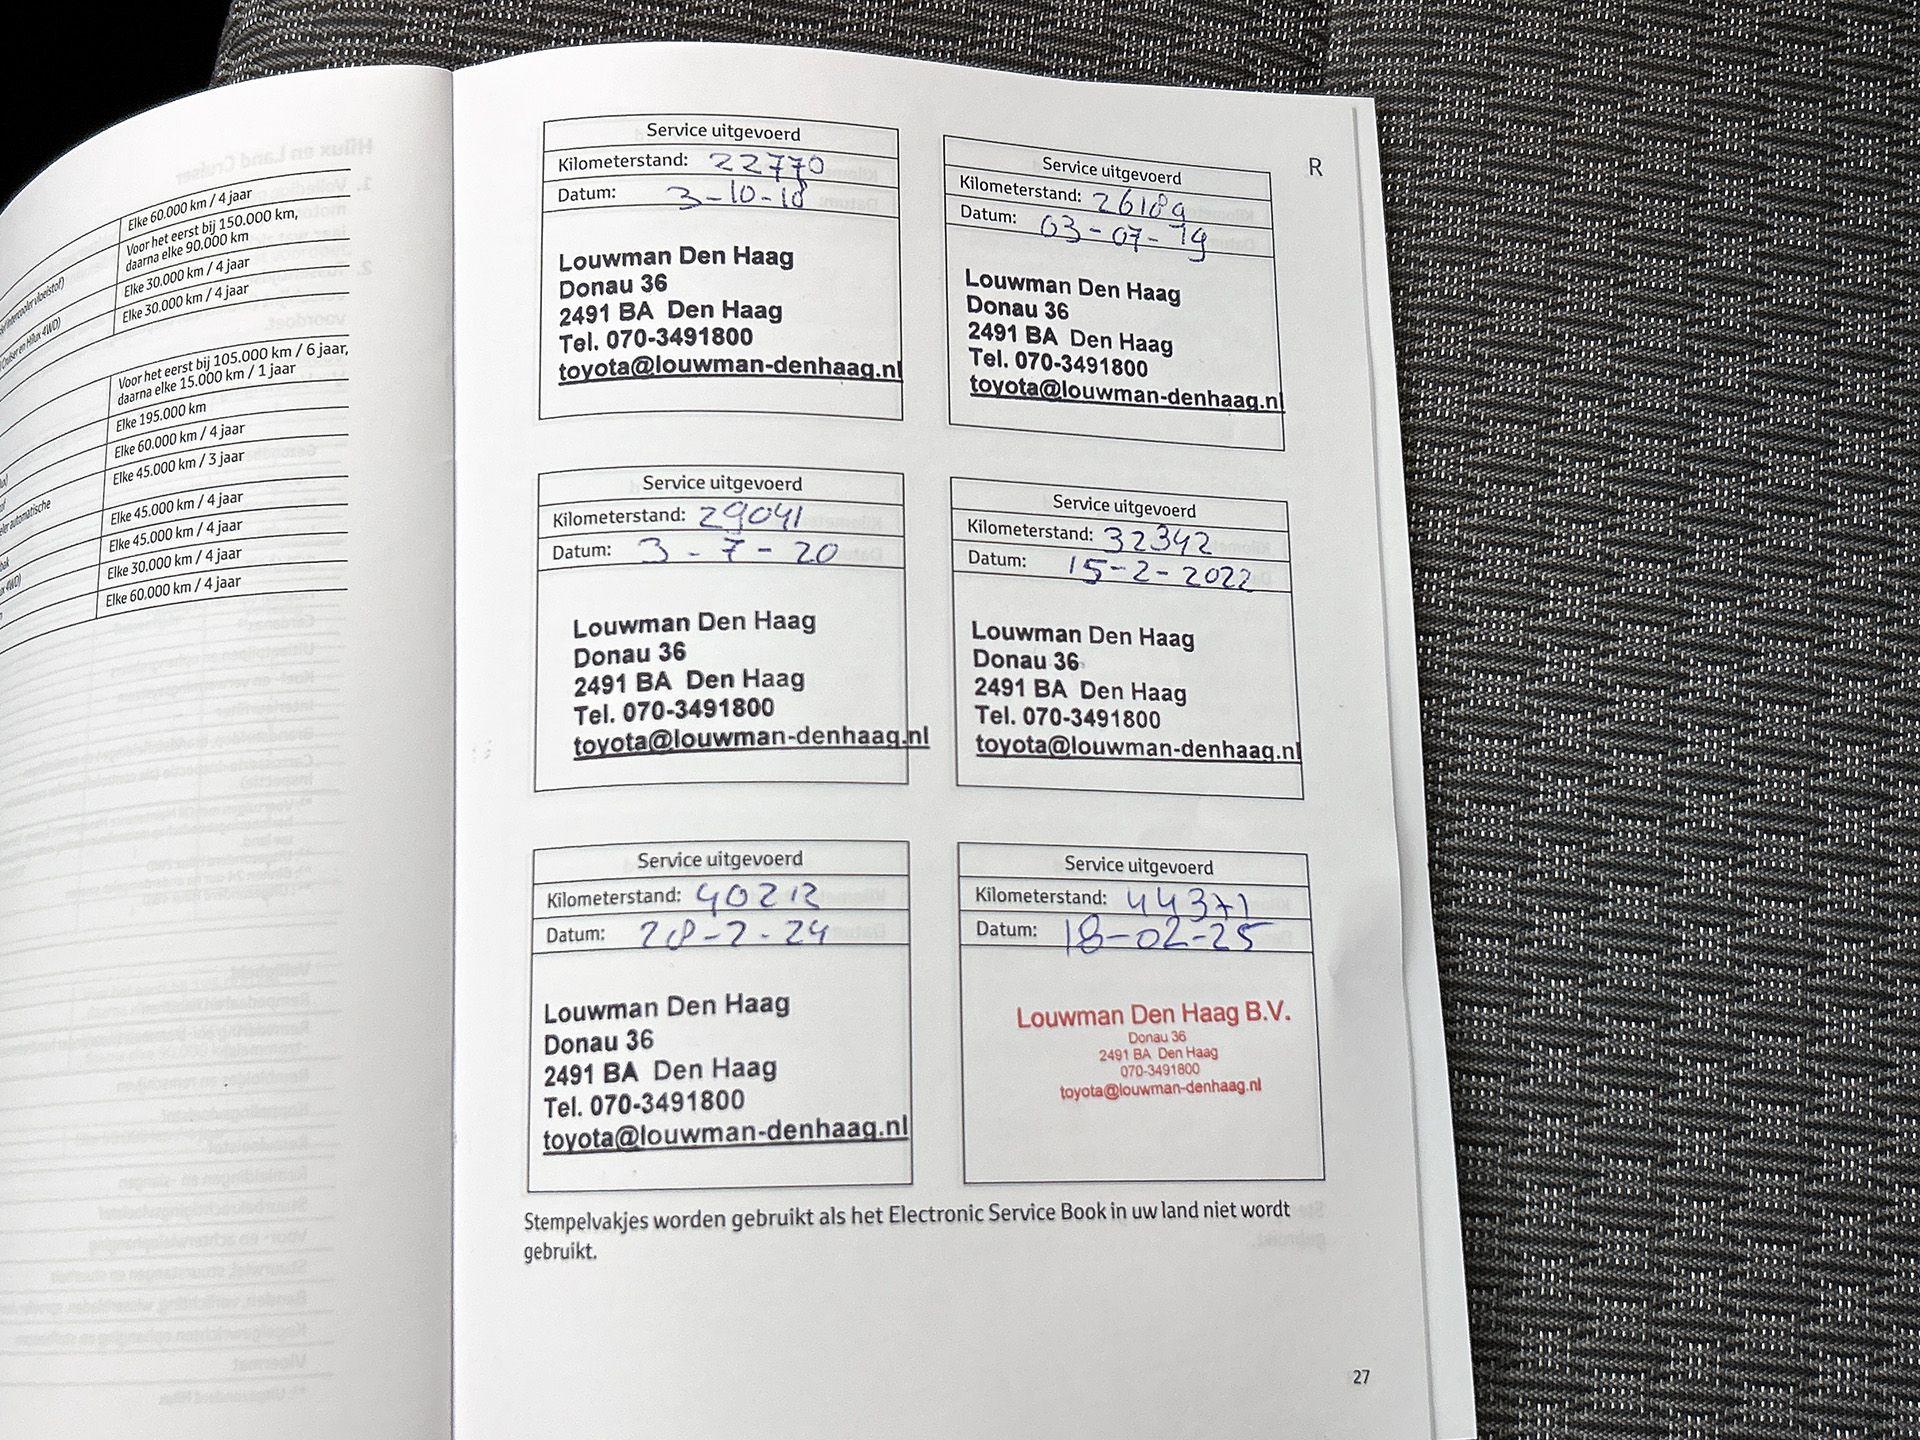 Elke 60.000 km / 4 jaar
Voor het eerst bij 150.000 km,
daarna elke 90.000 km
Elke 30.000 km / 4 jaar
Elke 30.000 km / 4 jaar
Voor het eerst bij 105.000 km / 6 jaar,
daarna elke 15.000 km / 1 jaar
Elke 195.000 km
Elke 60.000 km / 4 jaar
Elke 45.000 km / 3 jaar
automatische
Elke 45.000 km / 4 jaar
Elke 45.000 km / 4 jaar
Elke 30.000 km / 4 jaar
Elke 60.000 km / 4 jaar
R
Service uitgevoerd
Kilometerstand: 22770
Datum: 3-10-18
Louwman Den Haag
Donau 36
2491 BA Den Haag
Tel. 070-3491800
toyota@louwman-denhaag.nl
Service uitgevoerd
Kilometerstand: 26189
Datum: 03-07-19
Louwman Den Haag
Donau 36
2491 BA Den Haag
Tel. 070-3491800
toyota@louwman-denhaag.nl
Service uitgevoerd
Kilometerstand: 29041
Datum: 3-7-20
Louwman Den Haag
Donau 36
2491 BA Den Haag
Tel. 070-3491800
toyota@louwman-denhaag.nl
Service uitgevoerd
Kilometerstand: 32342
Datum: 15-2-2022
Louwman Den Haag
Donau 36
2491 BA Den Haag
Tel. 070-3491800
toyota@louwman-denhaag.nl
Service uitgevoerd
Kilometerstand: 40212
Datum: 28-2-24
Louwman Den Haag
Donau 36
2491 BA Den Haag
Tel. 070-3491800
toyota@louwman-denhaag.nl
Service uitgevoerd
Kilometerstand: 44371
Datum: 18-02-25
Louwman Den Haag B.V.
Donau 36
2491 BA Den Haag
070-3491800
toyota@louwman-denhaag.nl
Stempelvakjes worden gebruikt als het Electronic Service Book in uw land niet wordt
gebruikt.
27